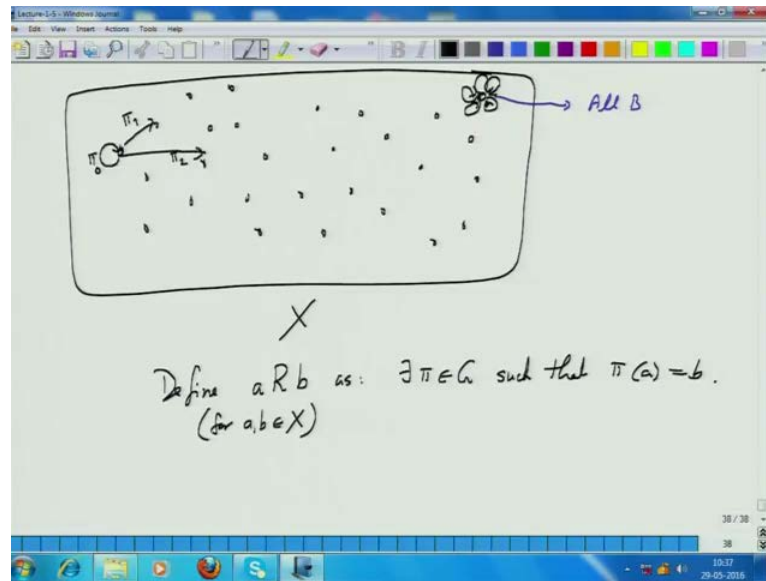 Lecture-1-5 - Windows Journal
File Edit View Insert Actions Tools Help
B I
All B
π₁
π₀
π₂
X
Define a R b as: ∃ π ∈ G such that π(a) = b.
(for a,b ∈ X)
38 / 38
38
10:37
29-05-2016